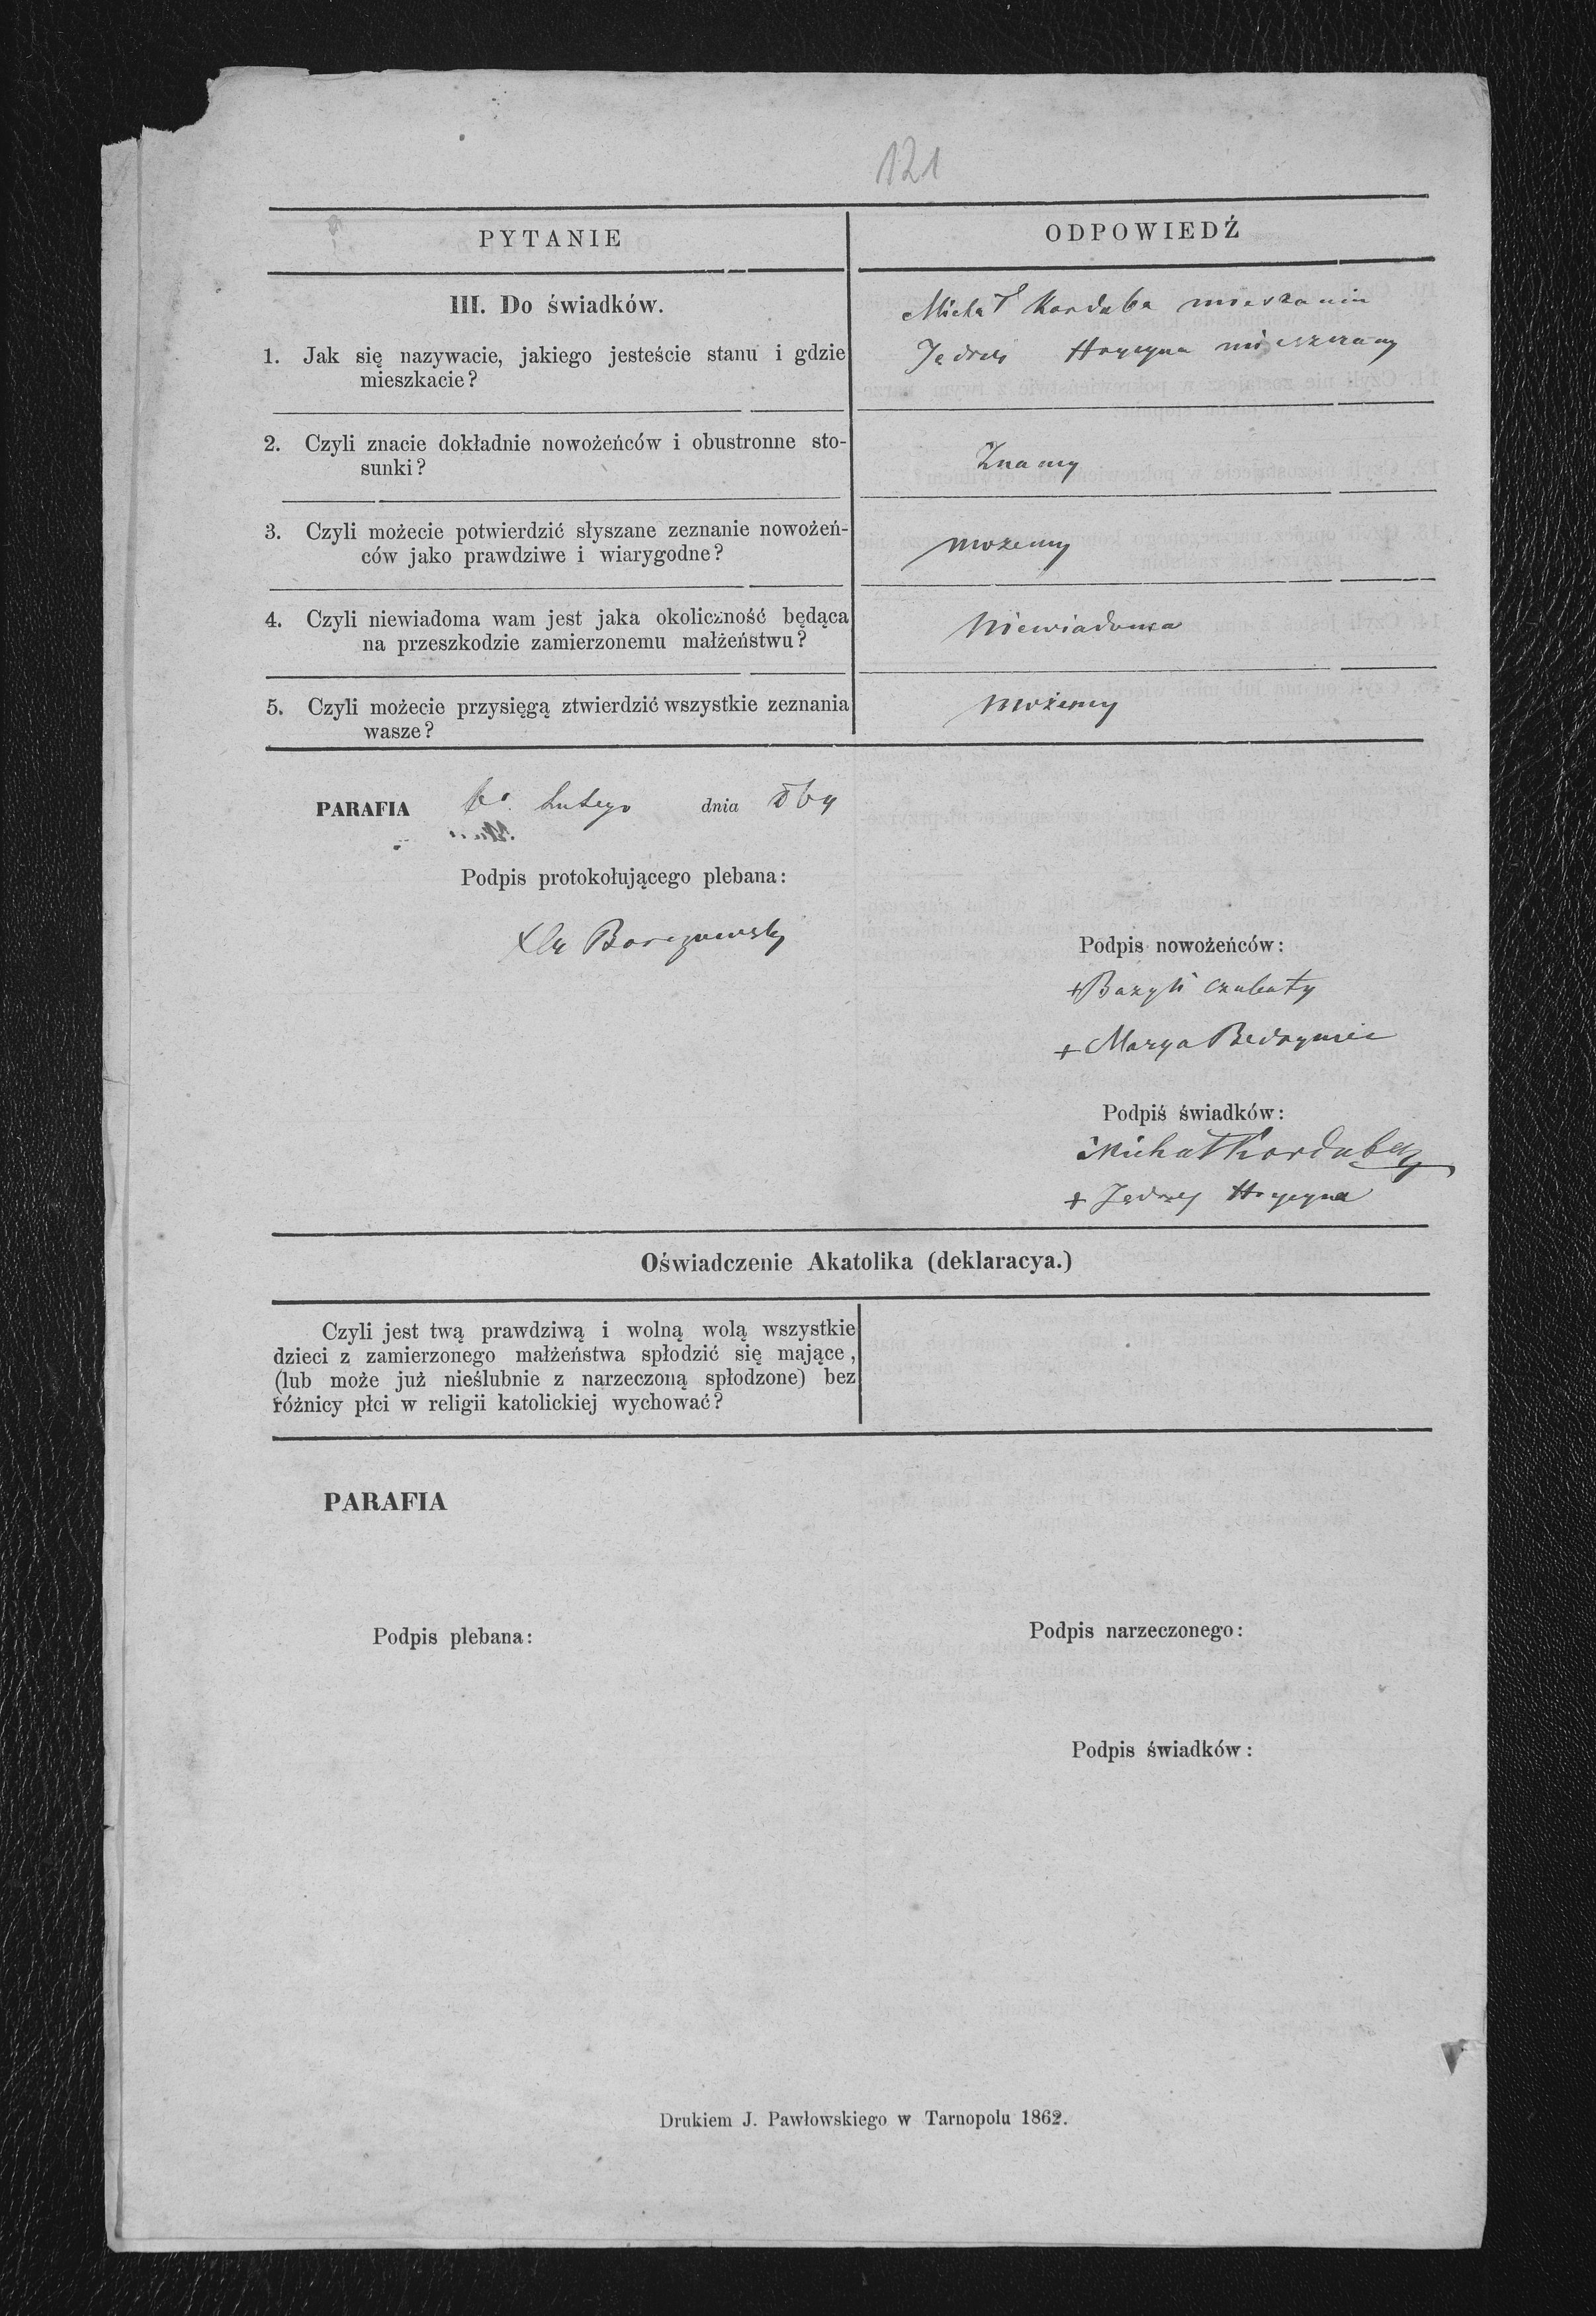 121
PYTANIE
ODPOWIEDŹ
III. Do świadków.
Michał Korduba mieszanin
1. Jak się nazywacie, jakiego jesteście stanu i gdzie
mieszkacie?
Jędrzej Hrycyna mieszczany
2. Czyli znacie dokładnie nowożeńców i obustronne sto-
sunki?
Znamy
3. Czyli możecie potwierdzić słyszane zeznanie nowożeń-
ców jako prawdziwe i wiarygodne?
możemy
4. Czyli niewiadoma wam jest jaka okoliczność będąca
na przeszkodzie zamierzonemu małżeństwu?
Niewiadoma
5. Czyli możecie przysięgą ztwierdzić wszystkie zeznania
wasze?
możemy
PARAFIA Lutego dnia
Podpis protokołującego plebana:
Podpis nowożeńców:
+ Bazyli Czubaty
+ Marya
Podpiś świadków:
Michał Korduba
+ Jędrzej Hrycyna
Oświadczenie Akatolika (deklaracya.)
Czyli jest twą prawdziwą i wolną wolą wszystkie
dzieci z zamierzonego małżeństwa spłodzić się mające,
(lub może już nieślubnie z narzeczoną spłodzone) bez
różnicy płci w religii katolickiej wychować?
PARAFIA
Podpis plebana:
Podpis narzeczonego:
Podpis świadków:
Drukiem J. Pawłowskiego w Tarnopolu 1862.